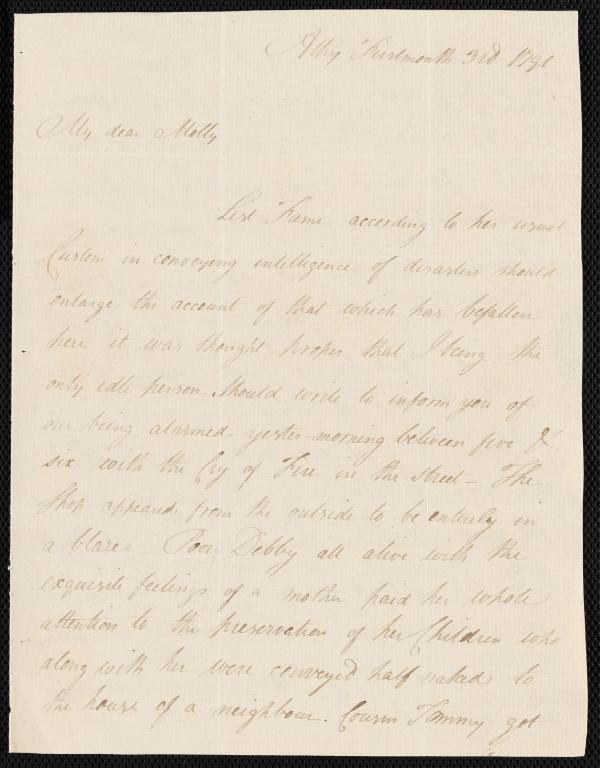 Athy Firstmonth 3rd 1791
My dear Molly
Lest Fame according to her usual
Custom in conveying intelligence of disasters should
enlarge the account of that which has befallen
here it was thought proper that I being the
only idle person should write to inform you of
our being alarmed yester-morning between five &
six with the Cry of Fire in the street - The
Shop appeared from the outside to be entirely in
a blaze. Poor Debby all alive with the
exquisite feelings of a mother paid her whole
attention to the preservation of her Children who
along with her were conveyed half naked to
the house of a neighbour. Cousin Tommy got